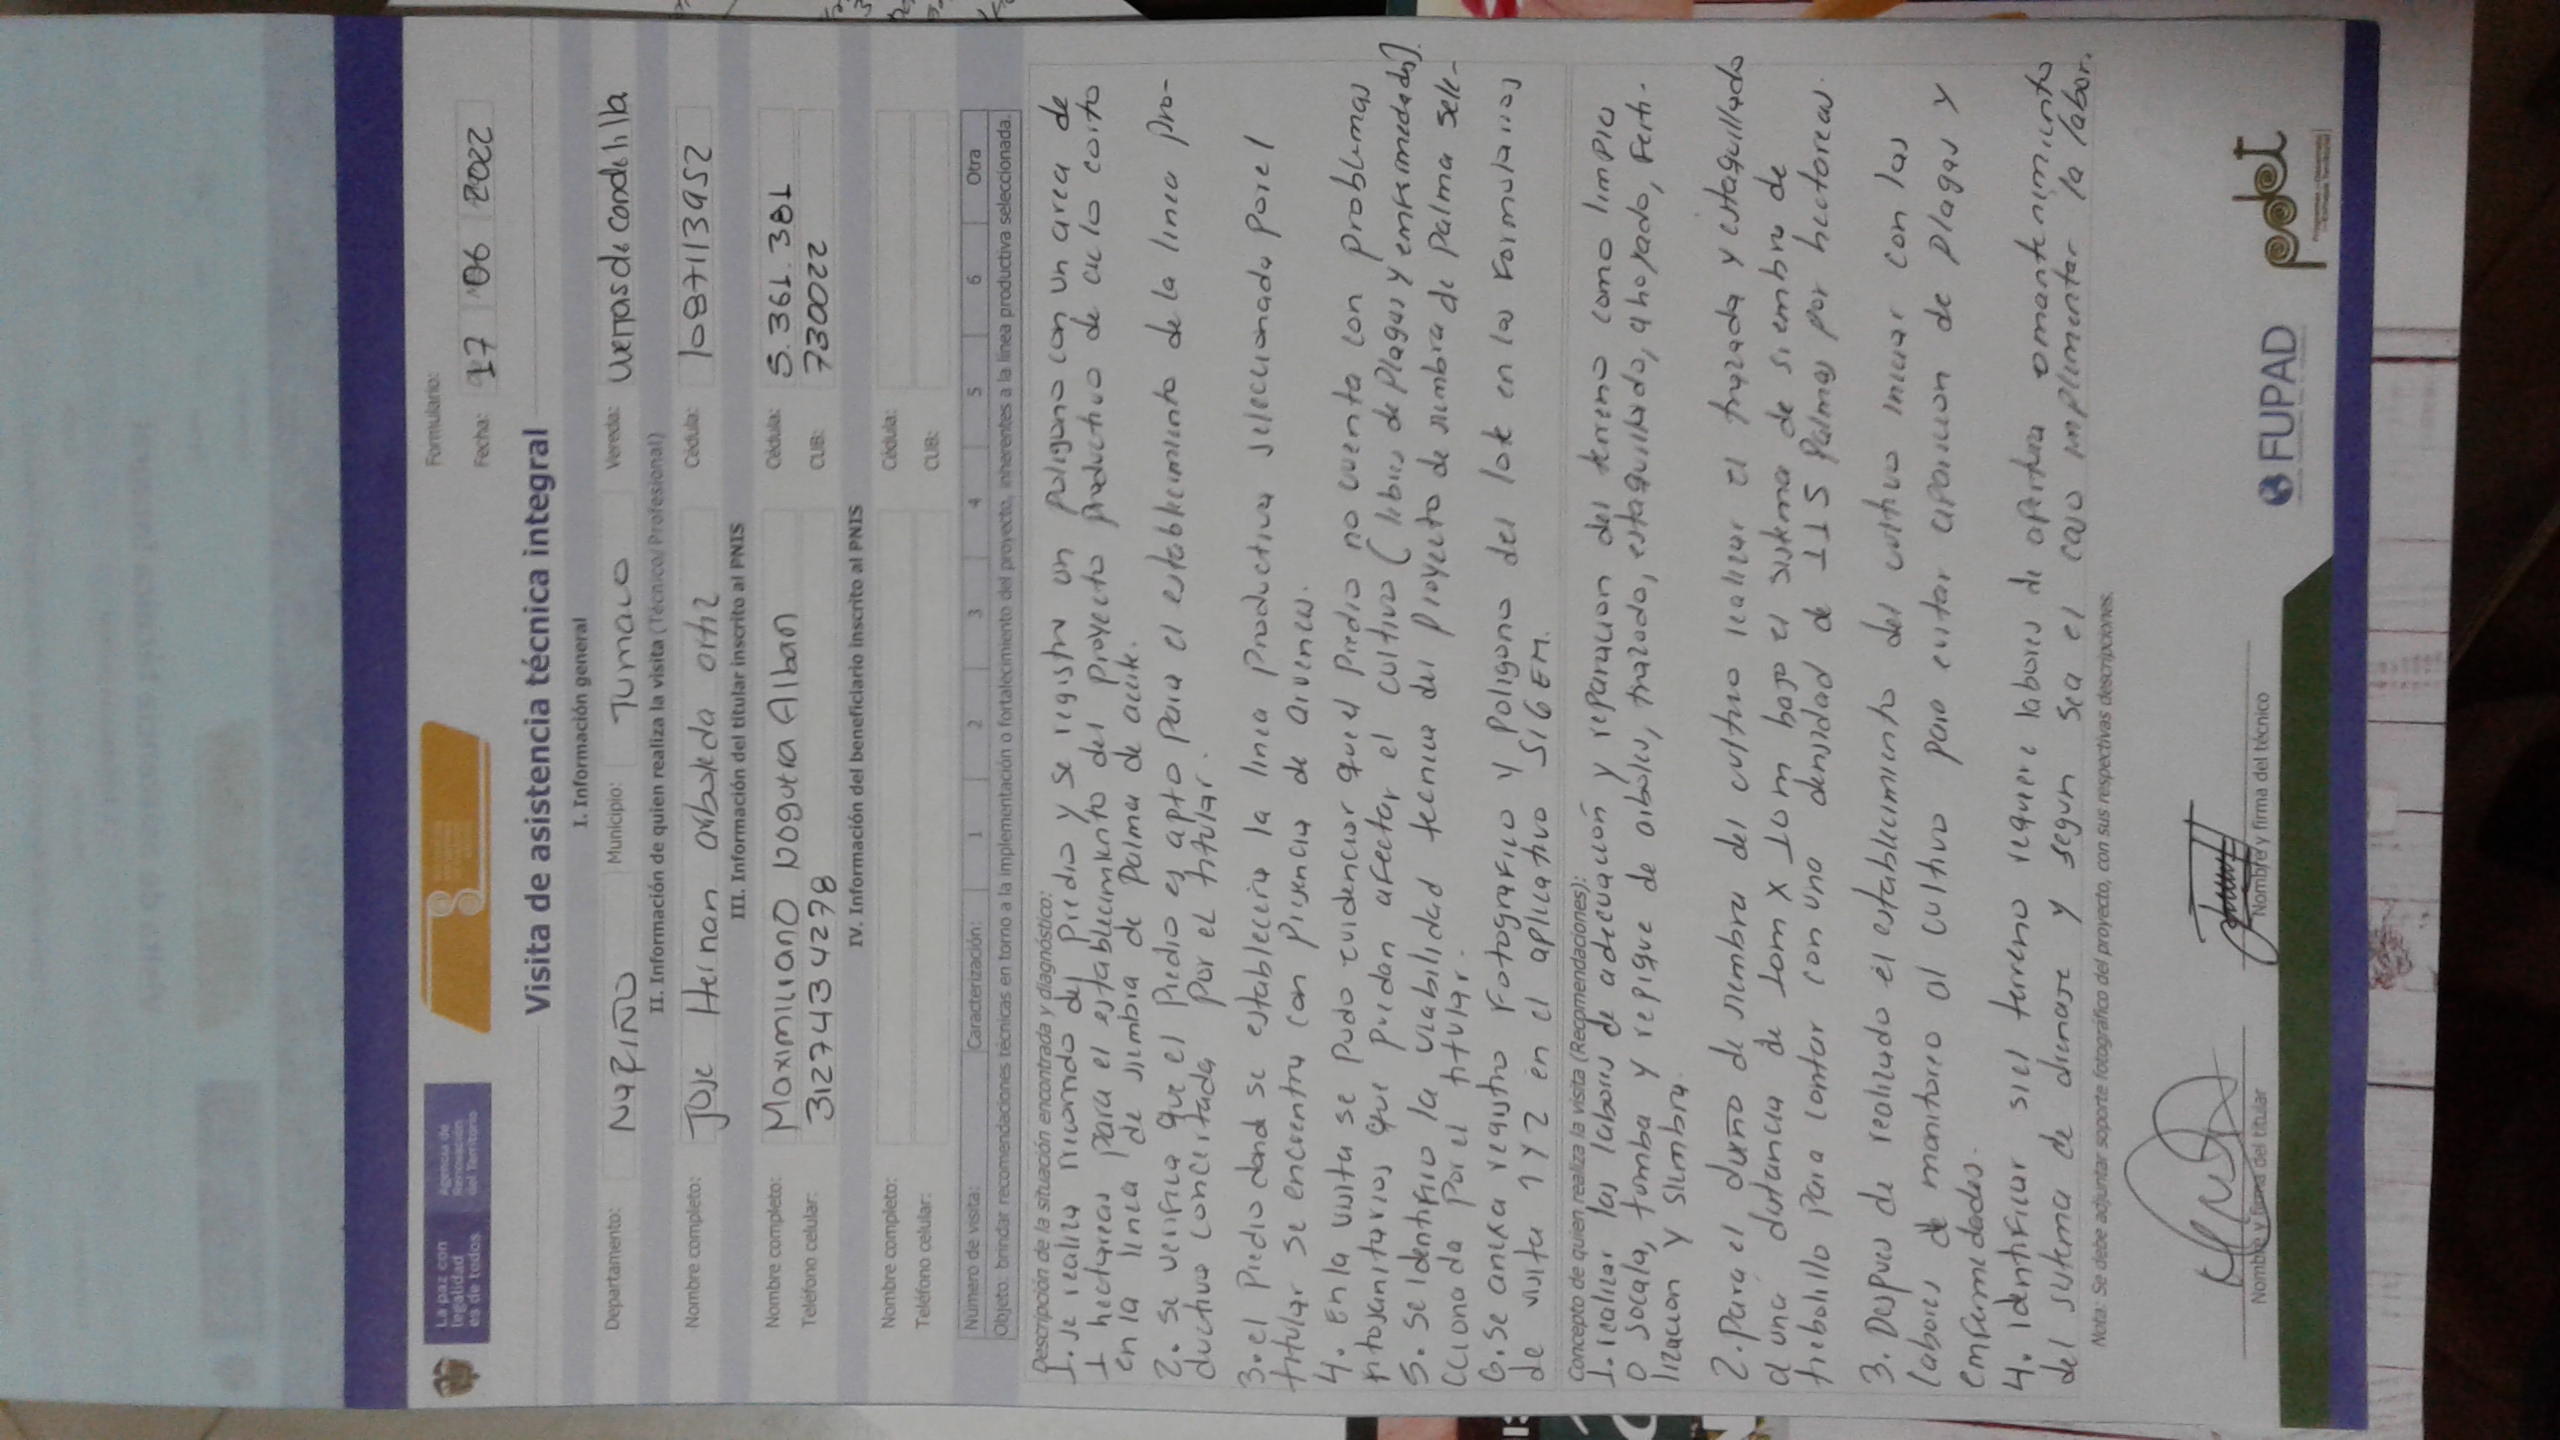 La paz con
legalidad
es de todos
Agencia de
Renovación
del Territorio
Formulario:
Fecha: 17 06 2022
Visita de asistencia técnica integral
I. Información general
Departamento: NARIÑO Municipio: Tumaco Vereda: Vertas de Candelilla
II. Información de quien realiza la visita (Técnico/ Profesional)
Nombre completo: Jose Hernan arboleda ortiz Cédula: 1087113952
III. Información del titular inscrito al PNIS
Nombre completo: Maximiliano Noguera Alban Cédula: 5.361.381
Teléfono celular: 3127434278 CUB: 730022
IV. Información del beneficiario inscrito al PNIS
Nombre completo: Cédula:
Teléfono celular: CUB:
Número de visita: Caracterización: 1 2 3 4 5 6 Otra
Objeto: brindar recomendaciones técnicas en torno a la implementación o fortalecimiento del proyecto, inherentes a la línea productiva seleccionada.
Descripción de la situación encontrada y diagnóstico:
1. se realiza recorrido del Predio y se registra un poligono con un area de
1 hectareas para el establecimiento del Proyecto productivo de ciclo corto
en la linea de siembra de Palma de aceite.
2. se verifica que el Predio es apto Para el establecimiento de la linea pro-
ductiva concertada por el titular.
3. el Predio donde se establecera la linea Productiva seleccionada por el
titular se encuentra con presencia de arvences.
4. En la visita se pudo evidenciar que el Predio no cuenta con problemas
fitosanitarios que puedan afectar el cultivo (libres de Plagas y enfermedades).
5. se identifico la viabilidad tecnica del Proyecto de siembra de Palma sele-
cciona da por el titular.
6. se anexa registro fotografico y poligono del lote en los formularios
de visita 1 y 2 en el aplicativo SIGEM.
Concepto de quien realiza la visita (Recomendaciones):
1. realizar las labores de adecuación y reparacion del terreno como limpia
o socala, tumba y repique de arboles, trazado, estaquillado, ahoyado, Ferti-
lizacion y siembra.
2. Para el diseño de siembra del cultivo realizar el trazado y estaquillado
a una distancia de 10m x 10m bajo el sistema de siembra de
trebolillo para contar con una densidad de 115 Palmas por hectareas.
3. Despues de realizado el establecimiento del cultivo iniciar con las
labores de monitoreo al cultivo para evitar aparicion de plagas y
enfermedades.
4. identificar si el terreno requiere labores de apertura o mantenimiento
del sistema de drenaje y segun sea el caso implementar la labor.
Nota: Se debe adjuntar soporte fotográfico del proyecto, con sus respectivas descripciones.
Nombre y firma del titular
Nombre y firma del técnico
FUPAD
pdet